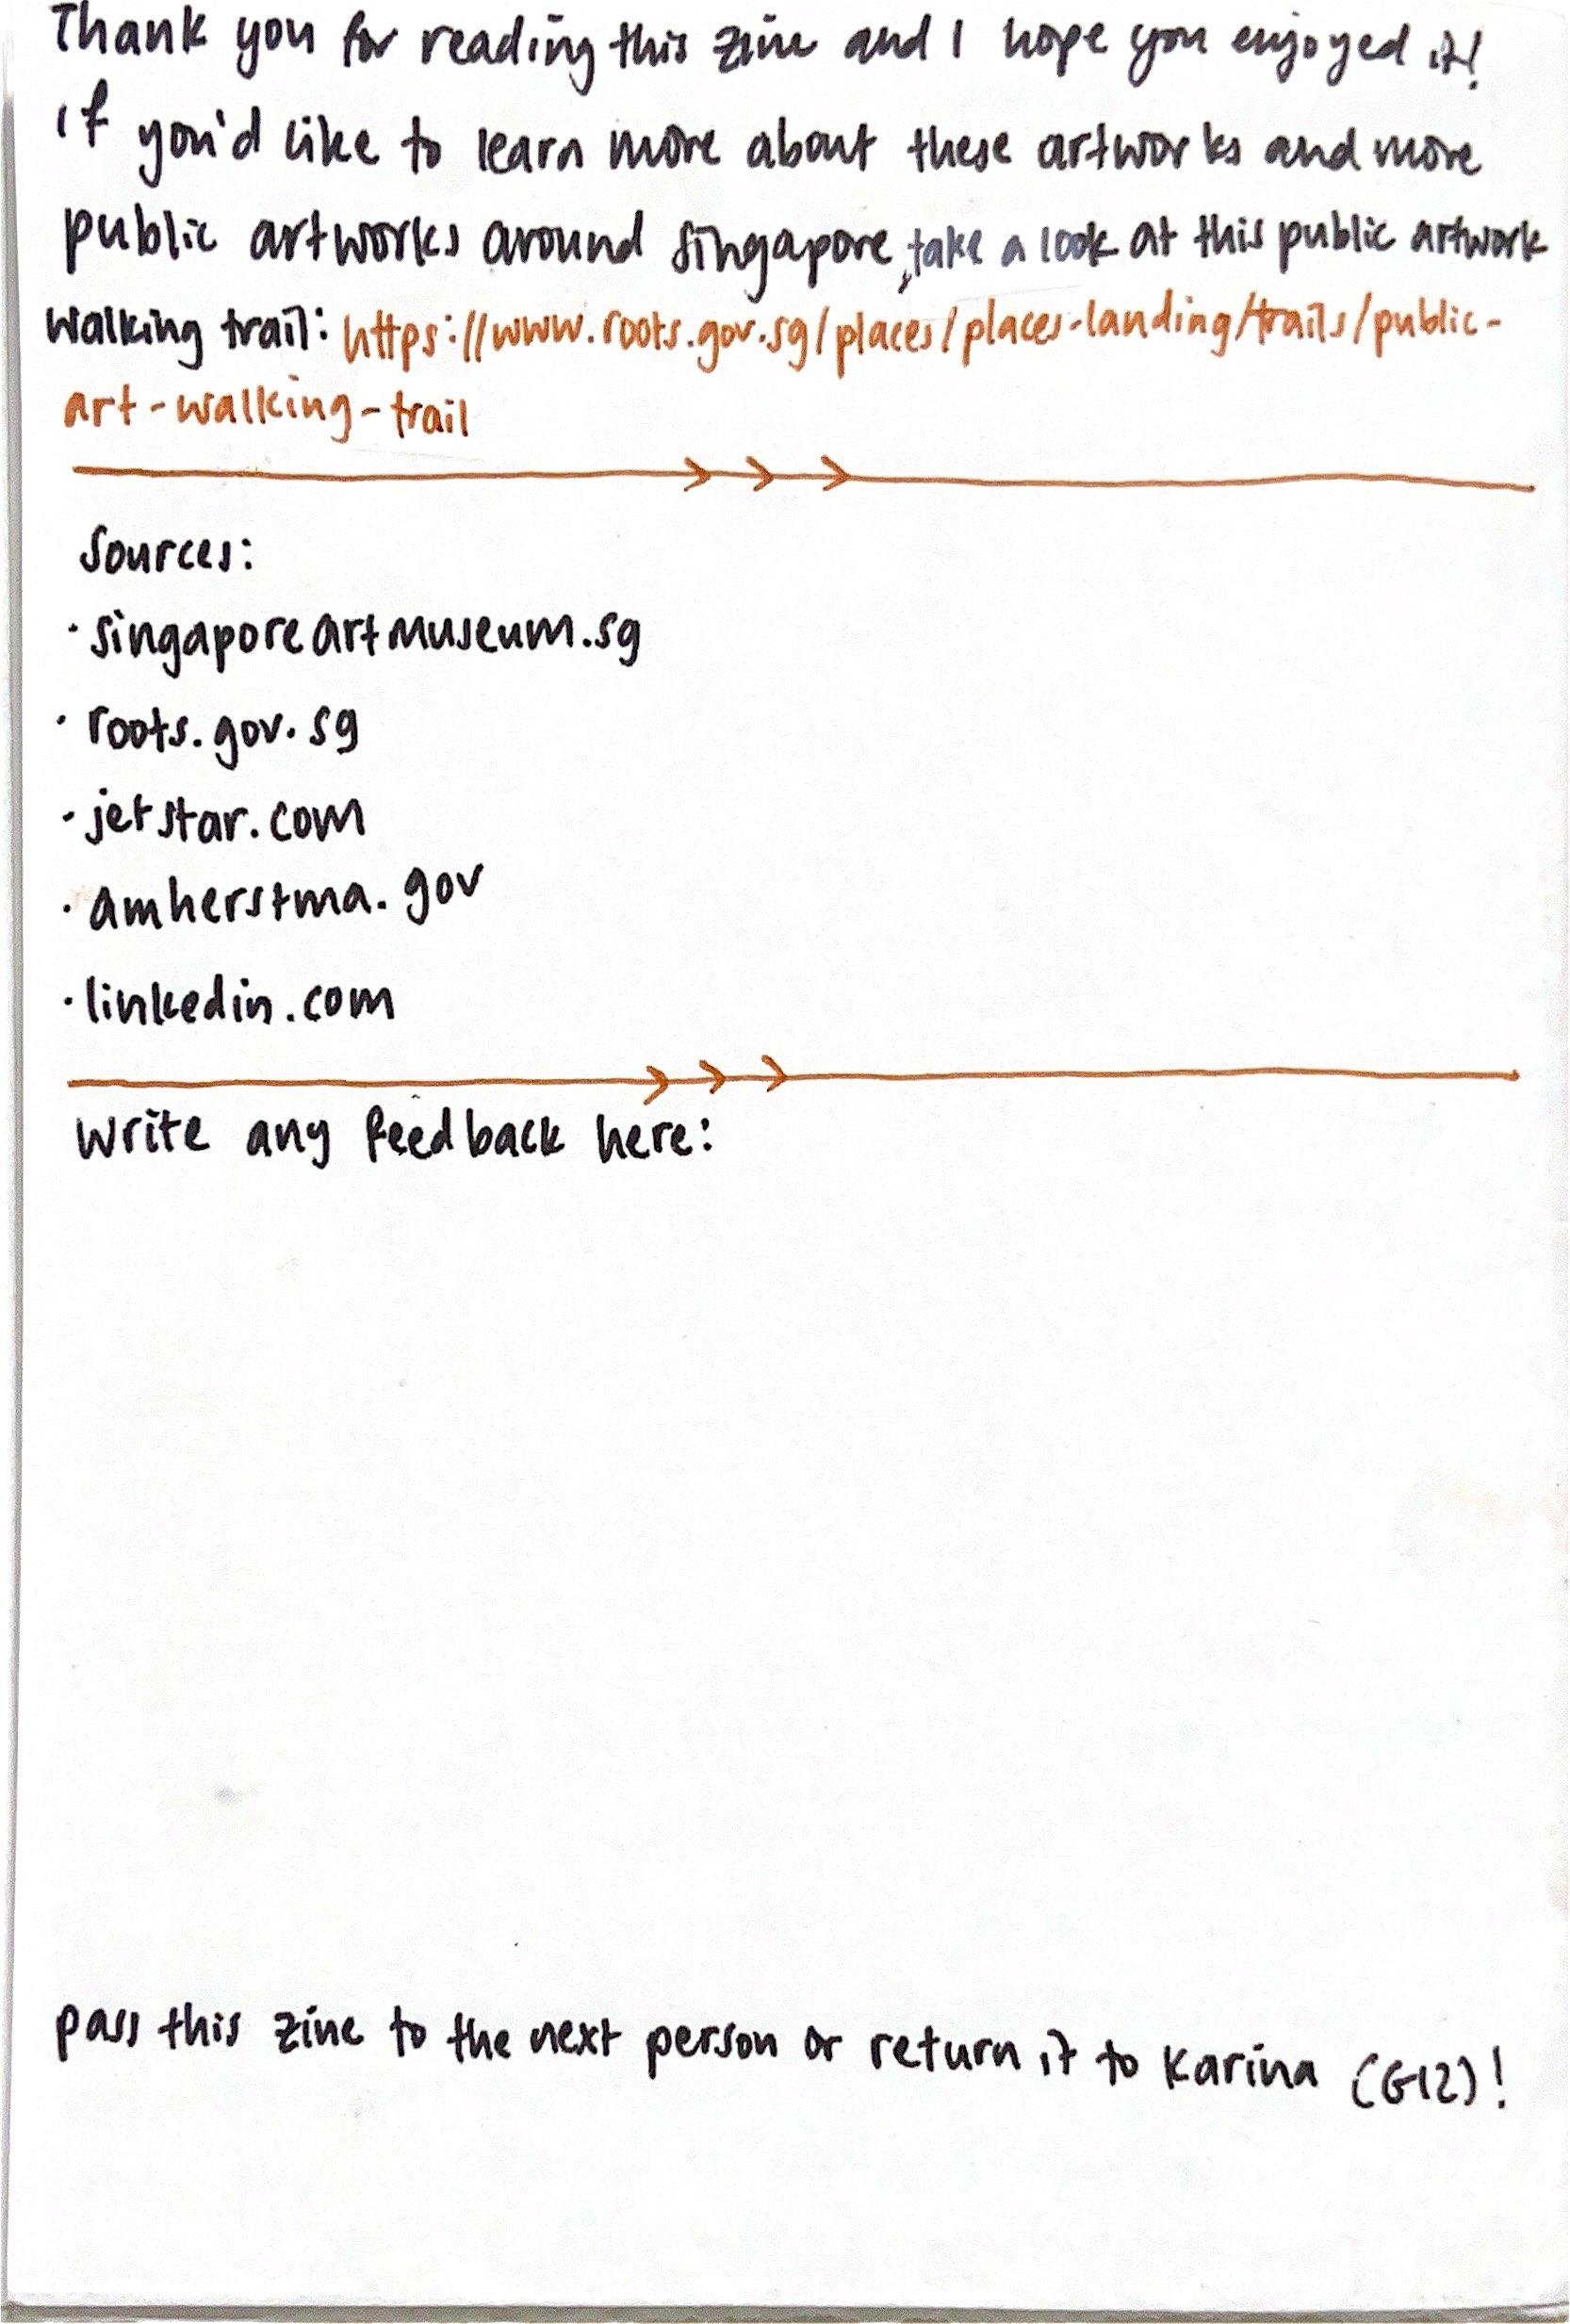 Thank you for reading this zine and I hope you enjoyed it!
If you'd like to learn more about these artworks and more
public artworks around Singapore, take a look at this public artwork
walking trail: https://www.roots.gov.sg/places/places-landing/trails/public-
art-walking-trail
Sources:
· singaporeartmuseum.sg
· roots.gov.sg
· jetstar.com
· amherstma.gov
· linkedin.com
Write any feedback here:
pass this zine to the next person or return it to Karina (G12)!